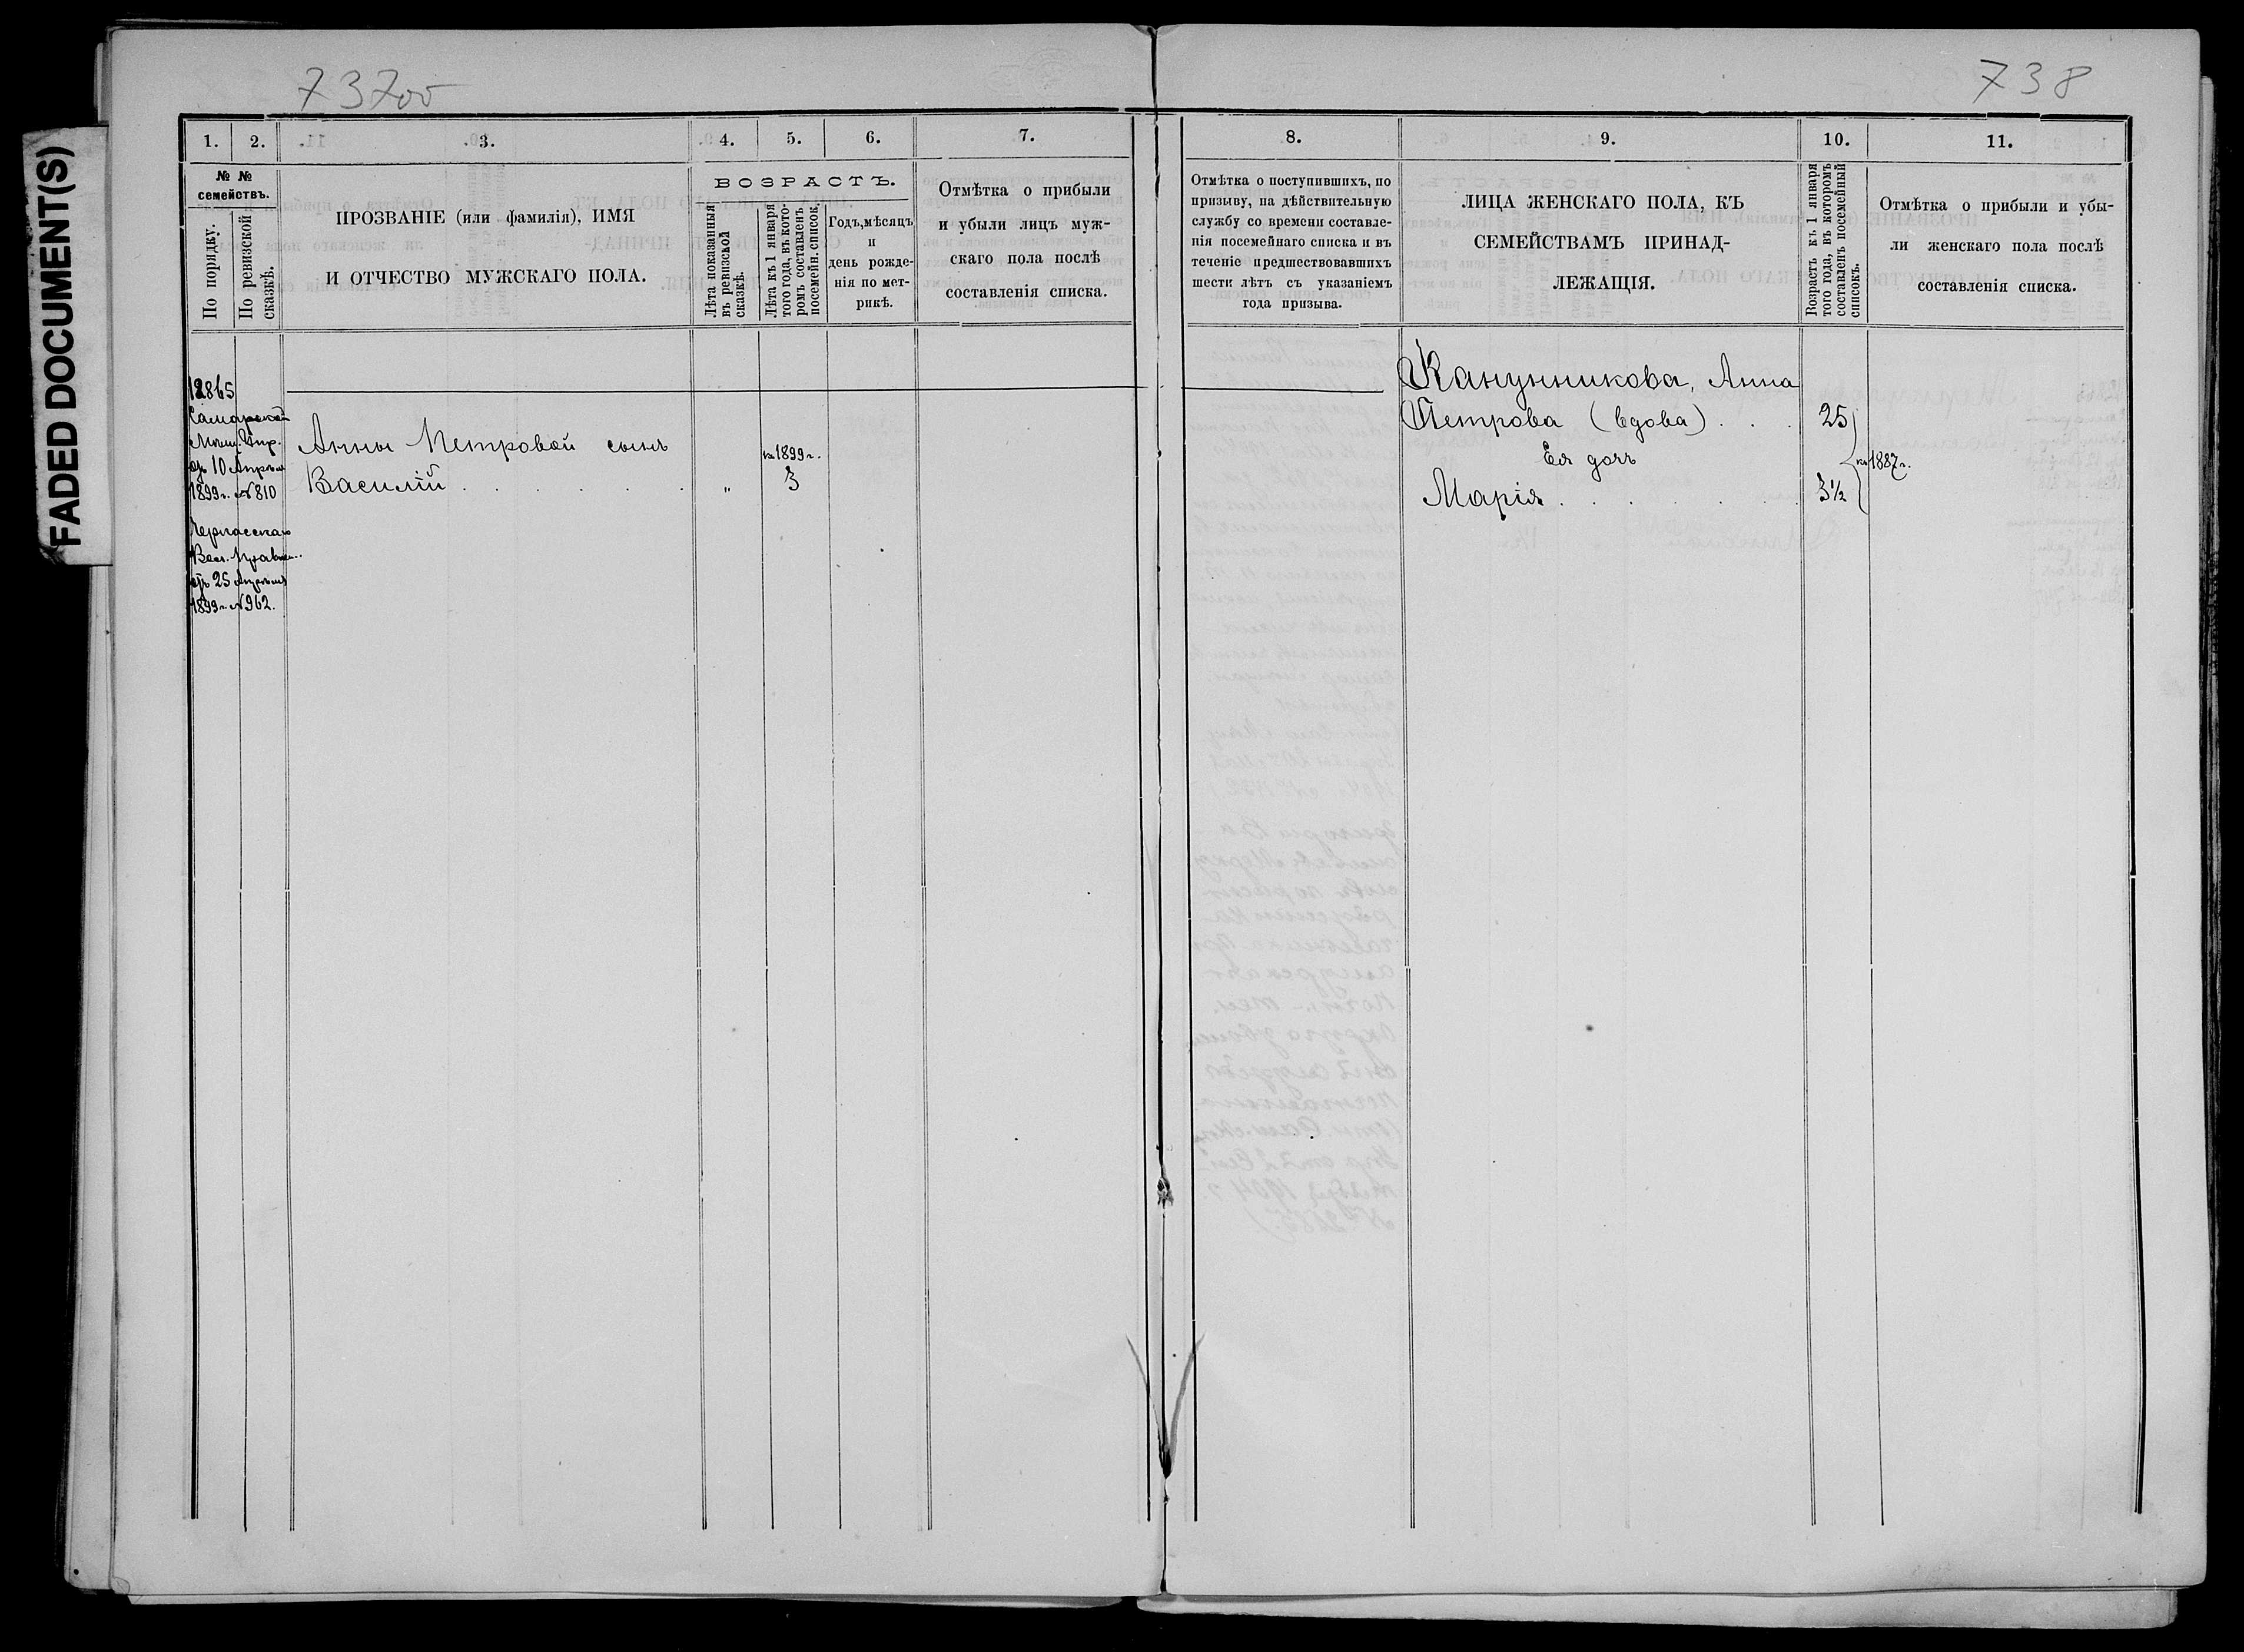 FADED DOCUMENT(S)
737об
738
1.
2.
3.
4.
5.
6.
7.
8.
9.
10.
11.
№ №
семействъ.
По порядку.
По ревизской
сказкѣ.
ПРОЗВАНІЕ (или фамилія), ИМЯ
И ОТЧЕСТВО МУЖСКАГО ПОЛА.
ВОЗРАСТЪ.
Лѣта показанныя
въ ревизской
сказкѣ.
Лѣта къ 1 января
того года, въ кото-
ромъ составленъ
посемейн. список.
Годъ, мѣсяцъ
и
день рожде-
нія по мет-
рикѣ.
Отмѣтка о прибыли
и убыли лицъ муж-
скаго пола послѣ
составленія списка.
Отмѣтка о поступившихъ, по
призыву, на дѣйствительную
службу со времени составле-
нія посемейнаго списка и въ
теченіе предшествовавшихъ
шести лѣтъ съ указаніемъ
года призыва.
ЛИЦА ЖЕНСКАГО ПОЛА, КЪ
СЕМЕЙСТВАМЪ ПРИНАД-
ЛЕЖАЩІЯ.
Возрастъ къ 1 января
того года, въ которомъ
составленъ посемейный
списокъ.
Отмѣтка о прибыли и убы-
ли женскаго пола послѣ
составленія списка.
12865
Самарской
Мѣщ. Упр.
отъ 10 Апрѣля
1899 г. № 810
Черкасскаго
Вол. Правлен.
отъ 25 Апрѣля
1899 г. № 962.
Анны Петровой сынъ
Василій . . . . . . . „ 3
къ 1899 г.
Канунникова, Анна
Петрова (вдова) . . . 25
Ея дочь
Марія . . . . . . 3½
къ 1887 г.